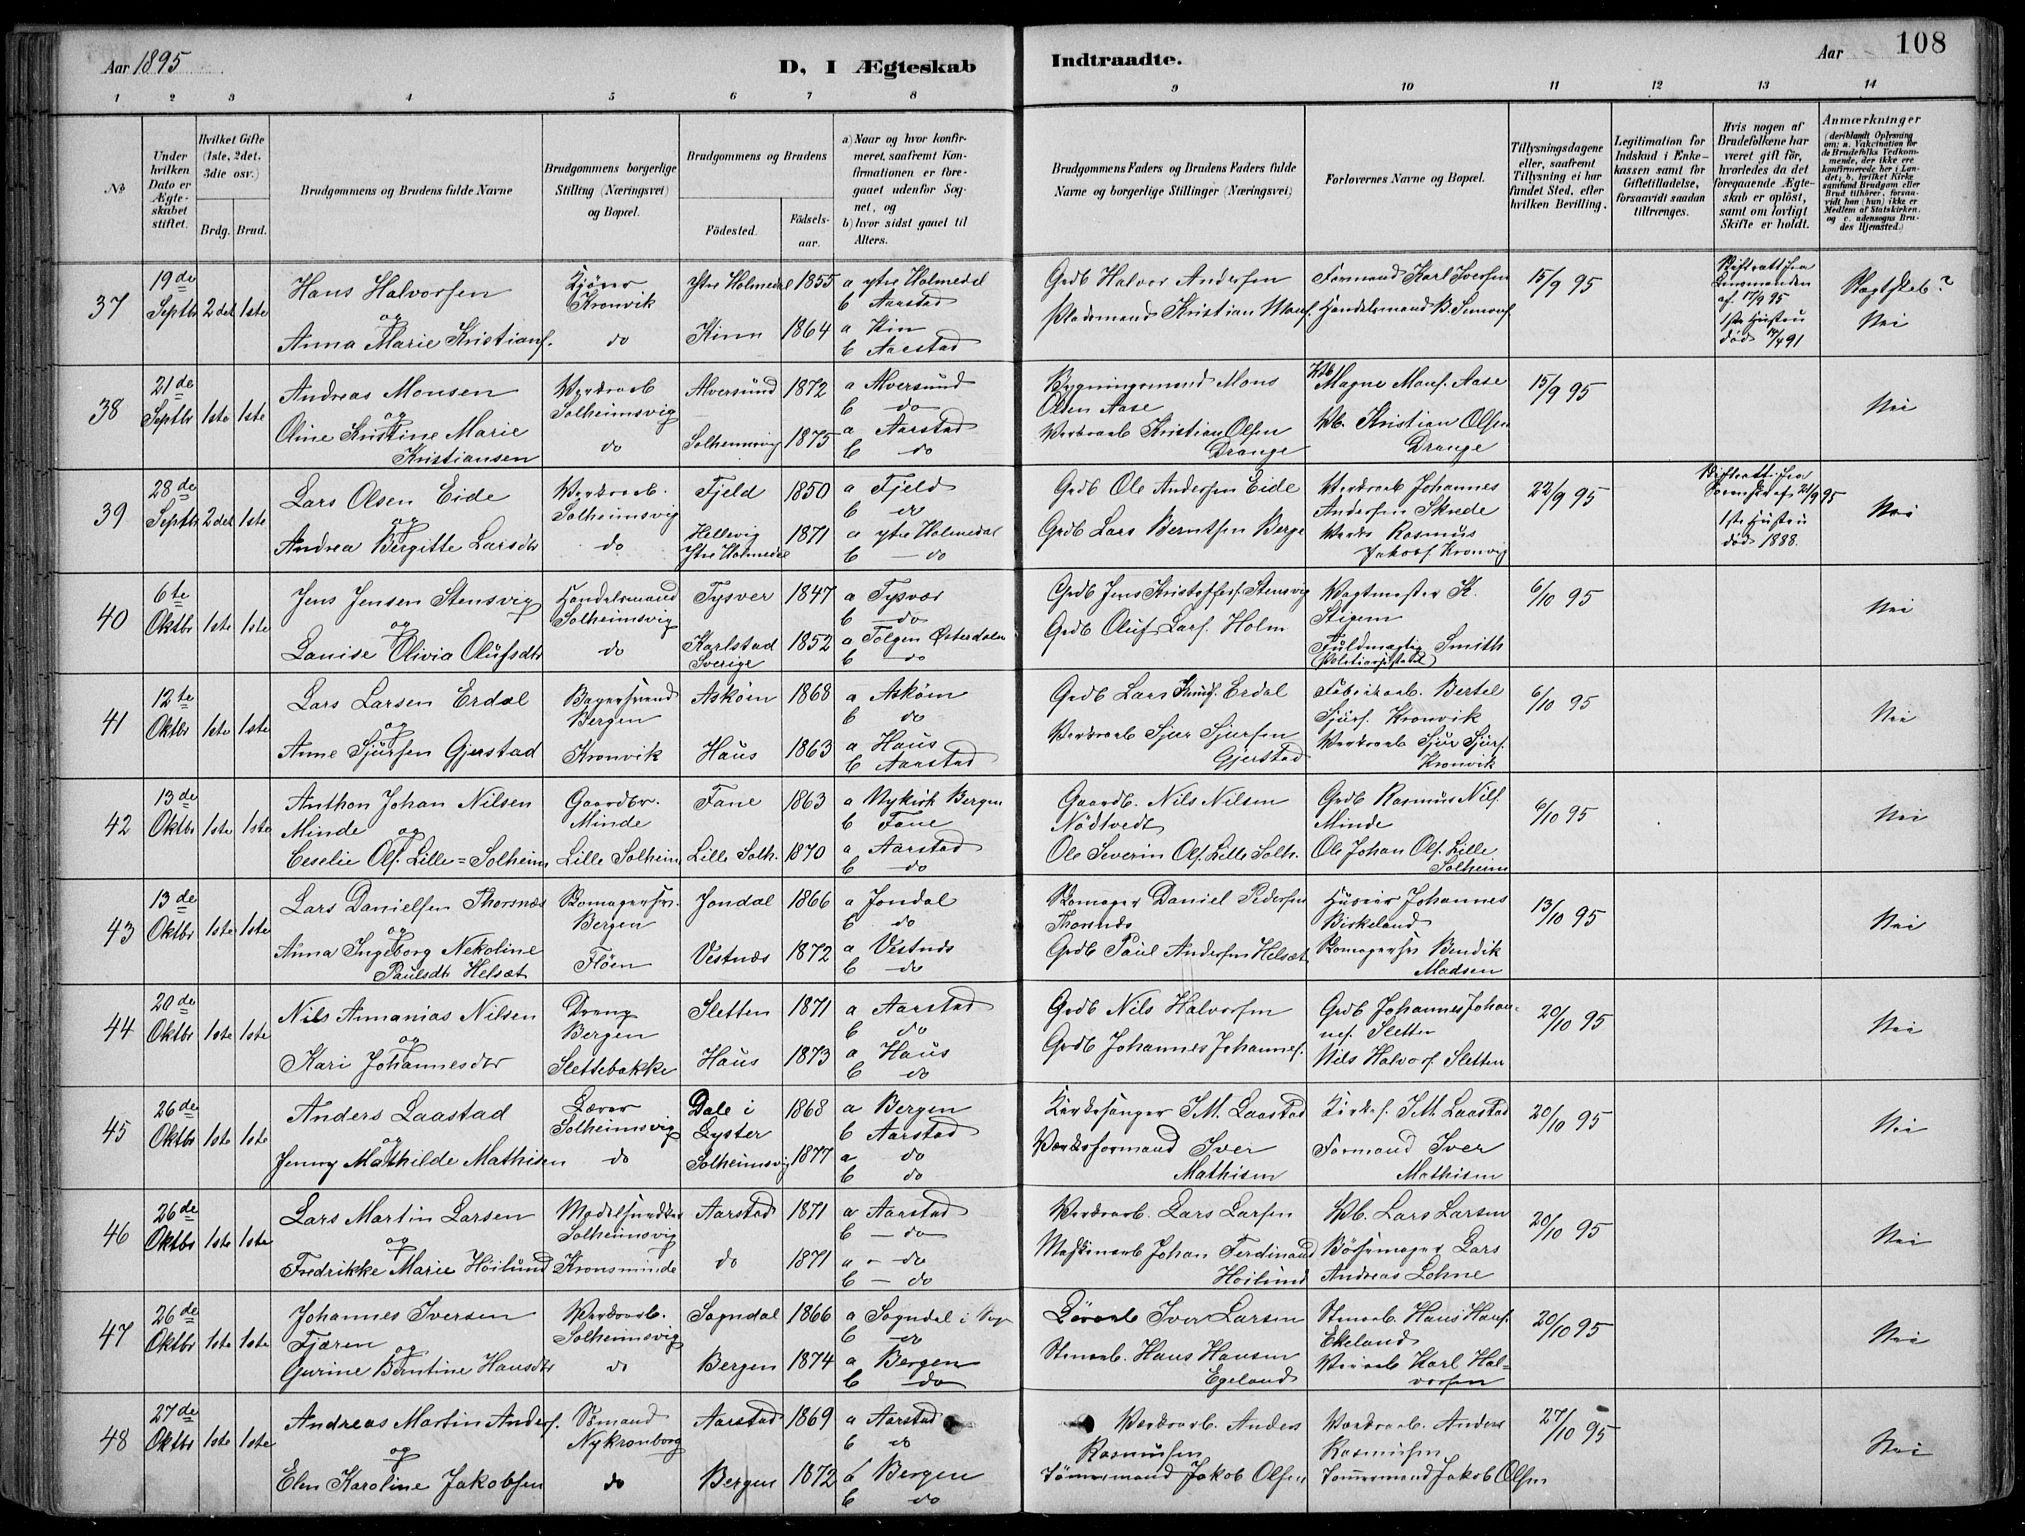 Aar 1895
D, I Ægteskab
Indtraadte.
Aar
108
1 2 3 4 5 6 7 8 9 10 11 12 13 14
№
Under hvilken Dato er Ægteskabet stiftet.
Hvilket Gifte (1ste, 2det, 3die osv.)
Brdg. Brud.
Brudgommens og Brudens fulde Navne
Brudgommens borgerlige Stilling (Næringsvei) og Bopæl.
Brudgommens og Brudens
Födested.
Födselsaar.
a) Naar og hvor konfirmeret, saafremt Konfirmationen er foregaaet udenfor Sognet, og
b) hvor sidst gaaet til Alters.
Brudgommens Faders og Brudens Faders fulde Navne og borgerlige Stillinger (Næringsvei)
Forlovernes Navne og Bopæl.
Tillysningsdagene eller, saafremt Tillysning ei har fundet Sted, efter hvilken Bevilling.
Legitimation for Indskud i Enkekassen samt for Giftetilladelse, forsaavidt saadan tiltrænges.
Hvis nogen af Brudefolkene har været gift för, hvorledes da det foregaaende Ægteskab er oplöst, samt om lovligt Skifte er holdt.
Anmærkninger
(deriblandt Oplysning om: a. Vakcination for de Brudefolks Vedkommende, der ikke ere konfirmerede her i Landet, b. hvilket Kirkesamfund Brudgom eller Brud tilhörer, forsaavidt han (hun) ikke er Medlem af Statskirken, og c. udensogns Brudes Hjemsted.)
37 19de Septbr 2det 1ste Hans Halvorsen Kjører Kronvik Ytre Holmedal 1855 a ytre Holmedal b Aarstad Grdb Halvor Andersen Formand Karl Iversen 15/9 95 Skifteatt fra Lensmanden af 17/9 95 1ste Hustru død 14/4 91 Slægtskab? Nei
og Anna Marie Kristians. do Kinn 1864 a Kin b Aarstad Pladsmand Kristian Mons. Handelsmand B.
38 21de Septbr 1ste 1ste Andreas Monsen Verksarb Solheimsvig Alversund 1872 a Alversund b do Bygningsmand Mons Olsen Aase Magne Mons. Aase 15/9 95 Nei
og Oline Kristine Marie Kristiansen do Solheimsvig 1875 a Aarstad b do Verksarb Kristian Olsen Drange Vb. Kristian Olsen Drange
39 28de Septbr 2det 1ste Lars Olsen Eide Verksarb. Solheimsvig Fjeld 1850 a Fjeld b do Grdb Ole Andersen Eide Verksarb Johannes Andersen Skrede 22/9 95 Skifteatt fra 21/9 95 1ste Hustru død 1888. Nei
og Andrea Bergitte Larsdtr do Hellevig Ytre Holmedal 1871 a ytre Holmedal b do Grdb Lars Berntsen Berge Rasmus Jakobs. Kronvig
40 6te Oktbr 1ste 1ste Jens Jensen Stensvig Handelsmand Solheimsvig Tysver 1847 a Tysvær b do Grdb Jens Kristoffers. Stensvig Vagtmester K. Stigem 6/10 95 Nei
og Louise Olivia Olufsdtr do Karlstad Sverige 1852 a Tolgen Østerdalen b do Grdb Oluf Lars. Holm Fuldmægtig Smith
41 12te Oktbr 1ste 1ste Lars Larsen Erdal Bagersvend Bergen Askøen 1868 a Askøen b do Grdb Lars Knuds. Erdal Fabrikarb. Bertel Sjurs. Kronvik 6/10 95 Nei
og Anne Sjursen Gjerstad Kronvik Haus 1863 a Haus b Aarstad Verksarb Sjur Sjursen Gjerstad Verksarb Sjur Sjurs. Kronvik
42 13de Oktbr 1ste 1ste Anthon Johan Nilsen Minde Gaardbr. Minde Fane 1863 a Nykirk Bergen b Fane Gaardb. Nils Nilsen Nödtvedt Grdb Rasmus Nils. Minde 6/10 95 Nei
og Ceselie Ols. Lille=Solheim Lille Solheim Lille Solh. 1870 a Aarstad b do Ole Severin Ols. Lille Solh. Ole Johan Ols. Lille Solheim
43 13de Oktbr 1ste 1ste Lars Danielsen Thorsnæs Skomagersv. Bergen Jondal 1866 a Jondal b do Skomager Daniel Pedersen Thorsnæs Johannes Birkeland 13/10 95 Nei
og Anna Ingeborg Nekoline Paulsdtr Helsæt Fløen Vestnæs 1872 a Vestnæs b do Grdb Paul Andersen Helsæt Skomagersv Bendik Madsen
44 20de Oktbr 1ste 1ste Nils Annanias Nilsen Dreng Bergen Sletten 1871 a Aarstad b do Grdb Nils Halvorsen Grdb Johannes Johannes. Sletten 20/10 95 Nei
og Kari Johannesdtr Slettebakke Haus 1873 a Haus b do Grdb Johannes Johannes. Nils Halvors. Sletten
45 26de Oktbr 1ste 1ste Anders Laastad Lærer Solheimsvig Dale i Lyster 1868 a Bergen b Aarstad Kirkesanger J.M. Laastad Kirkes. J.M. Laastad 20/10 95 Nei
og Jenny Mathilde Mathisen do Solheimsvig 1877 a do b do Værksformand Iver Mathisen Formand Iver Mathisen
46 26de Oktbr 1ste 1ste Lars Martin Larsen Solheimsvig Aarstad 1871 a Aarstad b do Verksarb. Lars Larsen Vb. Lars Larsen 20/10 95 Nei
og Fredrikke Marie Höilund Kronsminde do 1871 a do b do Maskinarb Johan Ferdinand Höilund Börsemager Lars Andreas Lohne
47 26de Oktbr 1ste 1ste Johannes Iversen Fjæren Verksarb. Solheimsvig Sogndal 1866 a Sogndal i Sogn b do Iver Larsen Stenarb. Hans Hans. Ekeland 20/10 95 Nei
og Gurine Berntine Hansdtr do Bergen 1874 a Bergen b do Stenarb. Hans Hansen Egeland Karl Halvorsen
48 27de Oktbr 1ste 1ste Andreas Martin Anders. Sømand Nykronborg Aarstad 1869 a Aarstad b do Verksarb. Anders Rasmusen Verksarb. Anders Rasmusen 27/10 95 Nei
og Elen Karoline Jakobsen do Bergen 1872 a Bergen b do Tømmermand Jakob Olsen Tømmermand Jakob Olsen